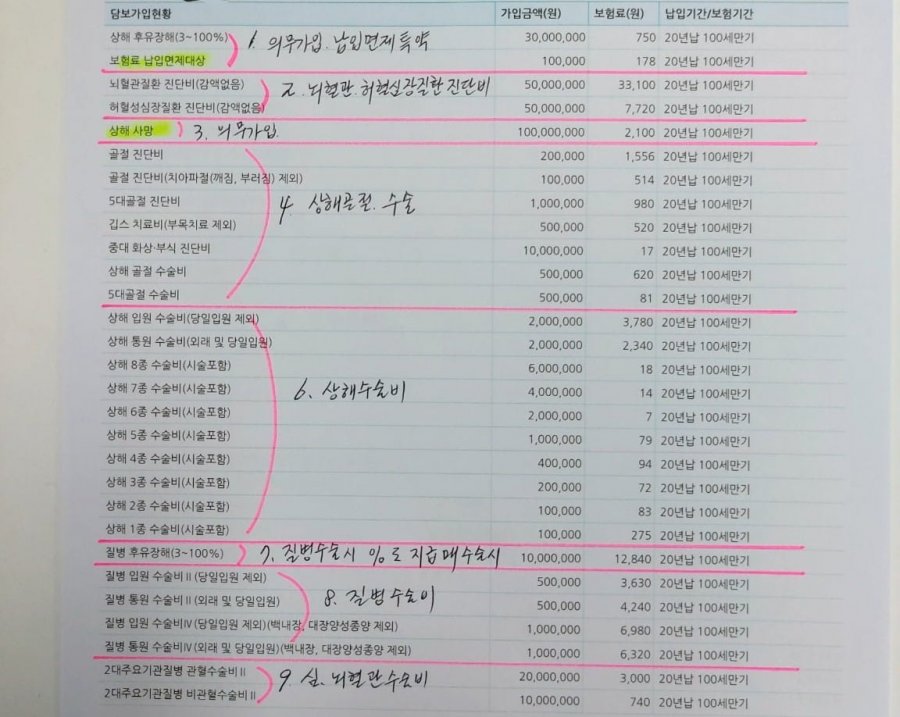 담보가입현황 가입금액(원) 보험료(원) 납입기간/보험기간
상해 후유장해(3~100%) 30,000,000 750 20년납 100세만기
1. 의무가입. 납입면제특약
보험료 납입면제대상 100,000 178 20년납 100세만기
뇌혈관질환 진단비(감액없음) 50,000,000 33,100 20년납 100세만기
2. 뇌혈관. 허혈심장질환 진단비
허혈성심장질환 진단비(감액없음) 50,000,000 7,720 20년납 100세만기
상해 사망 3. 의무가입 100,000,000 2,100 20년납 100세만기
골절 진단비 200,000 1,556 20년납 100세만기
골절 진단비(치아파절(깨짐, 부러짐) 제외) 100,000 514 20년납 100세만기
5대골절 진단비 4. 상해골절. 수술 1,000,000 980 20년납 100세만기
깁스 치료비(부목치료 제외) 500,000 520 20년납 100세만기
중대 화상·부식 진단비 10,000,000 17 20년납 100세만기
상해 골절 수술비 500,000 620 20년납 100세만기
5대골절 수술비 500,000 81 20년납 100세만기
상해 입원 수술비(당일입원 제외) 2,000,000 3,780 20년납 100세만기
상해 통원 수술비(외래 및 당일입원) 2,000,000 2,340 20년납 100세만기
상해 8종 수술비(시술포함) 6,000,000 18 20년납 100세만기
상해 7종 수술비(시술포함) 6. 상해수술비 4,000,000 14 20년납 100세만기
상해 6종 수술비(시술포함) 2,000,000 7 20년납 100세만기
상해 5종 수술비(시술포함) 1,000,000 79 20년납 100세만기
상해 4종 수술비(시술포함) 400,000 94 20년납 100세만기
상해 3종 수술비(시술포함) 200,000 72 20년납 100세만기
상해 2종 수술비(시술포함) 100,000 83 20년납 100세만기
상해 1종 수술비(시술포함) 100,000 275 20년납 100세만기
질병 후유장해(3~100%) 7. 질병수술시 %로 지급 매수술시 10,000,000 12,840 20년납 100세만기
질병 입원 수술비Ⅱ(당일입원 제외) 500,000 3,630 20년납 100세만기
질병 통원 수술비Ⅱ(외래 및 당일입원) 8. 질병수술비 500,000 4,240 20년납 100세만기
질병 입원 수술비Ⅳ(당일입원 제외)(백내장, 대장양성종양 제외) 1,000,000 6,980 20년납 100세만기
질병 통원 수술비Ⅳ(외래 및 당일입원)(백내장, 대장양성종양 제외) 1,000,000 6,320 20년납 100세만기
2대주요기관질병 관혈수술비Ⅱ 20,000,000 3,000 20년납 100세만기
9. 심. 뇌혈관수술비
2대주요기관질병 비관혈수술비Ⅱ 10,000,000 740 20년납 100세만기